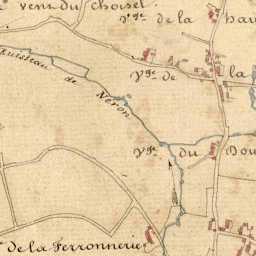 Vent du Choisel
Vge de la hau
Ruisseau de Néron
Vge de la
Vge du Dou
de la Ferronnerie